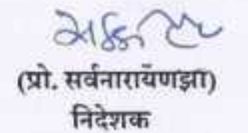 (प्रो. सर्वनारायँणझा)
निदेशक